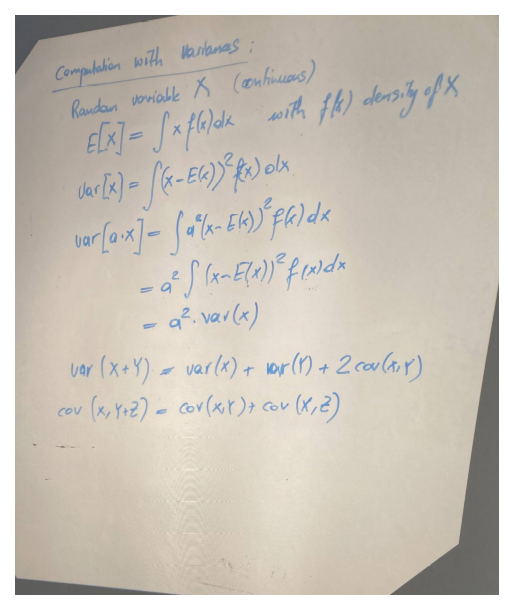 Computation with Variances :
Random variable X (continuous)
E[X] = ∫ x f(x) dx with f(x) density of X
Var[x] = ∫(x-E(x))² f(x) dx
var[a·x] = ∫ a²(x-E(x))² f(x) dx
= a² ∫ (x-E(x))² f(x) dx
= a² · var(x)
var (X+Y) = var(x) + var(Y) + 2 cov(x,Y)
cov (x, Y+Z) = cov(x,Y) + cov (X,Z)